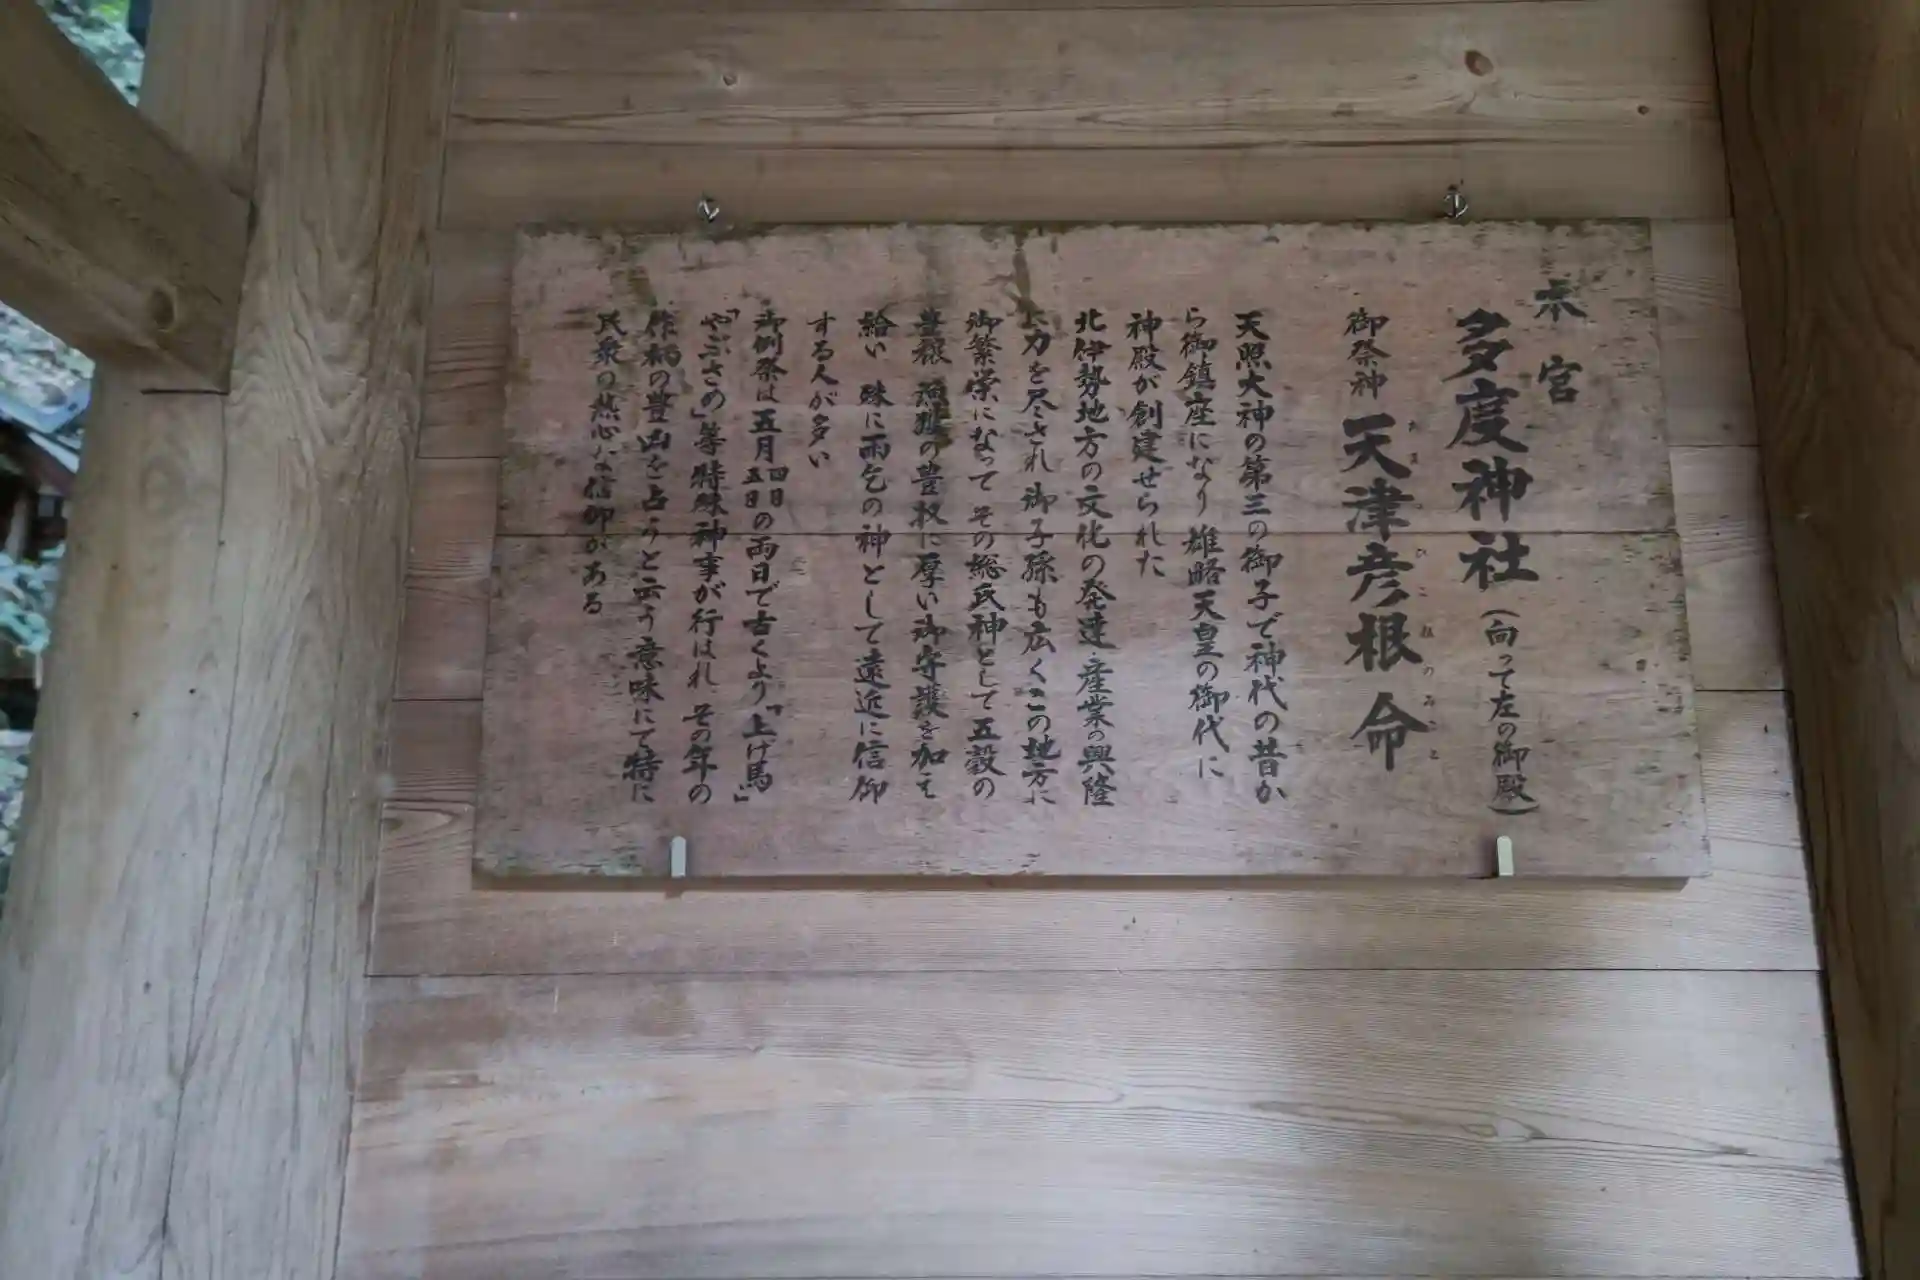 本宮
多度神社（向って左の御殿）
御祭神 天津彦根命
あまつひこねのみこと
天照大神の第三の御子で神代の昔か
ら御鎮座になり 雄略天皇の御代に
神殿が創建せられた
北伊勢地方の文化の発達・産業の興隆
に力を尽され 御子孫も広くこの地方に
御繁栄になって その総氏神として 五穀の
豊穣 漁猟の豊収に厚い御守護を加え
給い 殊に雨乞の神として遠近に信仰
する人が多い
御例祭は五月四日五日の両日で古くより「上げ馬」
「やぶさめ」等特殊神事が行はれ その年の
作柄の豊凶を占うと云う意味にて特に
民衆の熱心な信仰がある